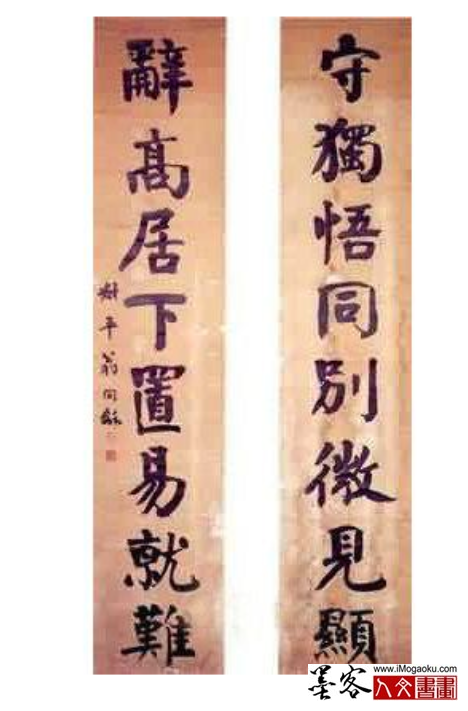 守獨悟同別微見顯
辭高居下置易就難
叔平翁同龢
www.iMogaoku.com
墨客
人文書畫